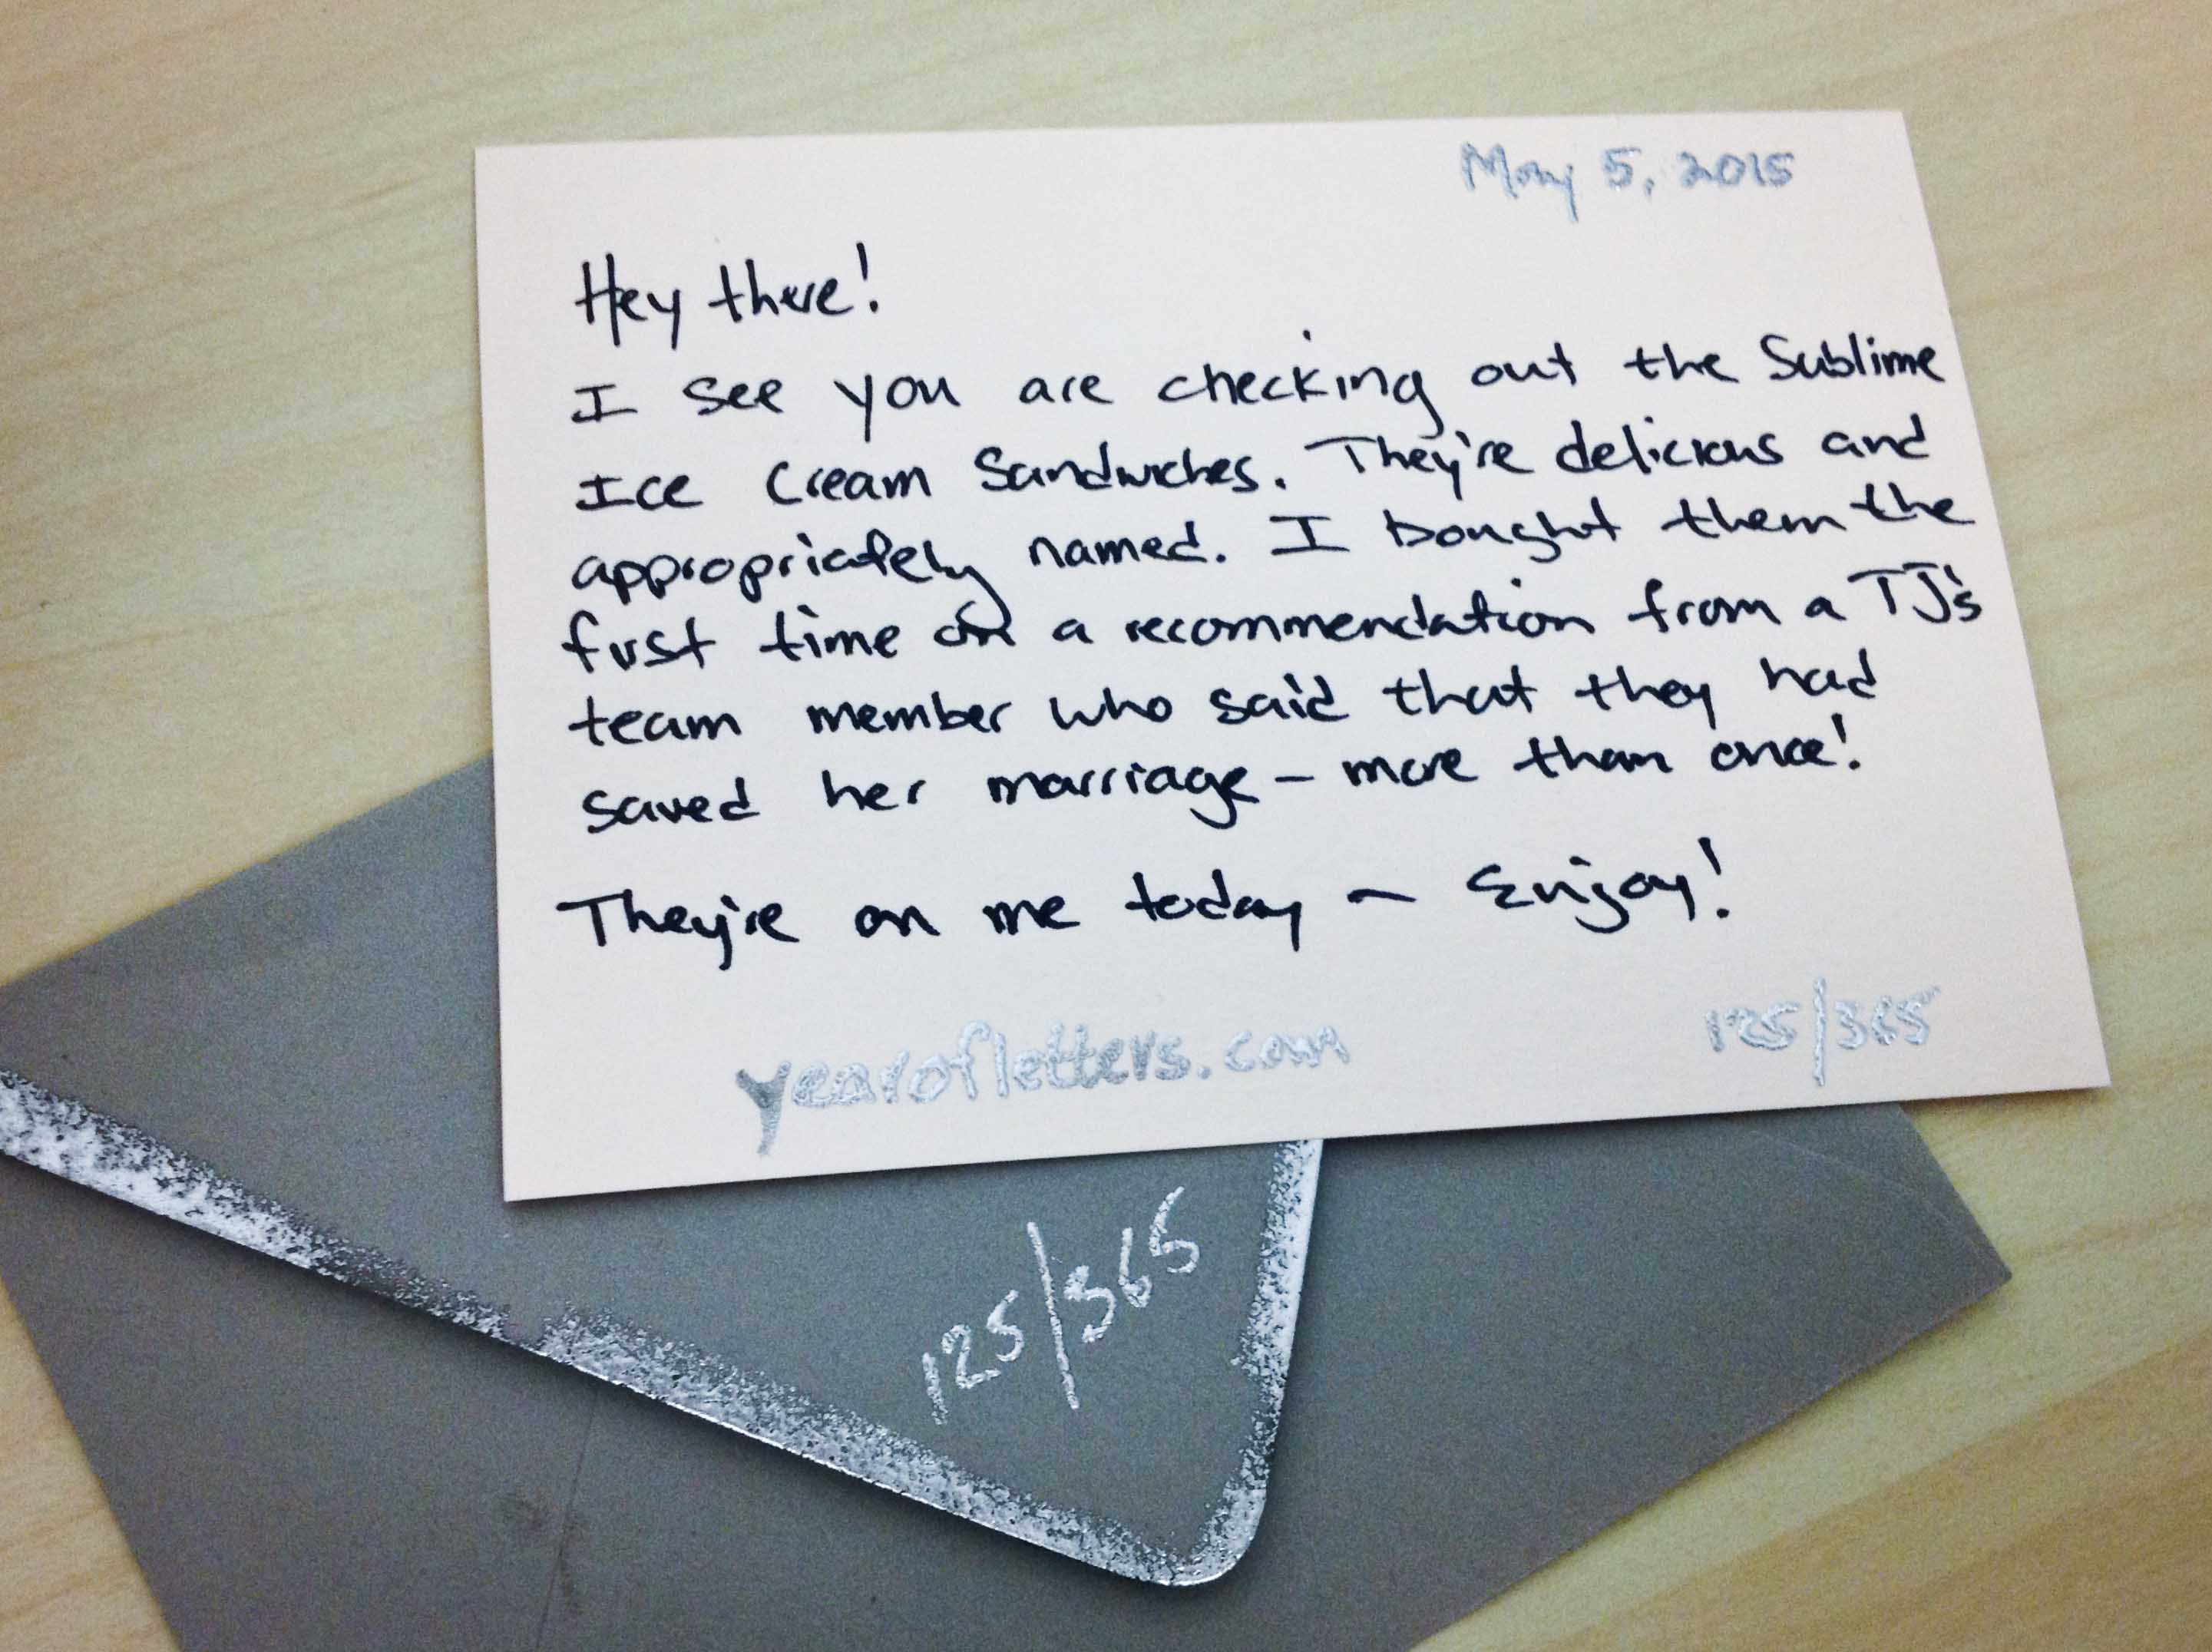 May 5, 2015
Hey there!
I see you are checking out the Sublime
Ice Cream Sandwiches. They're delicious and
appropriately named. I bought them the
first time on a recommendation from a TJ's
team member who said that they had
saved her marriage – more than once!
They're on me today – Enjoy!
yearofletters.com
125/365
125/365